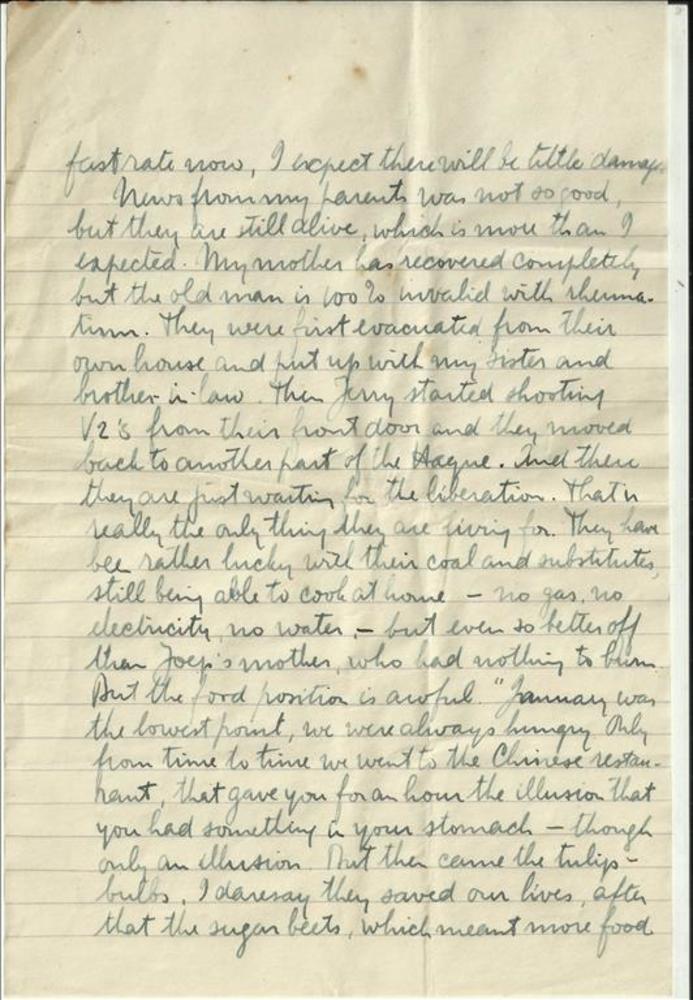 fast rate now, I expect there will be little damage
News from my parents was not so good,
but they are still alive, which is more than I
expected. My mother has recovered completely
but the old man is 100% invalid with rheuma-
tism. They were first evacuated from their
own house and put up with my sister and
brother-in-law. Then Jerry started shooting
V2's from their front door and they moved
back to another part of the Hague. And there
they are just waiting for the liberation. That is
really the only thing they are living for. They have
bee rather lucky with their coal and substitutes,
still being able to cook at home – no gas, no
electricity, no water, – but even so better off
than Joep's mother, who had nothing to burn.
But the food position is awful. "January was
the lowest point, we were always hungry. Only
from time to time we went to the Chinese restau-
rant, that gave you for an hour the illusion that
you had something in your stomach – though
only an illusion. But then came the tulip-
bulbs, I daresay they saved our lives, after
that the sugar beets, which meant more food